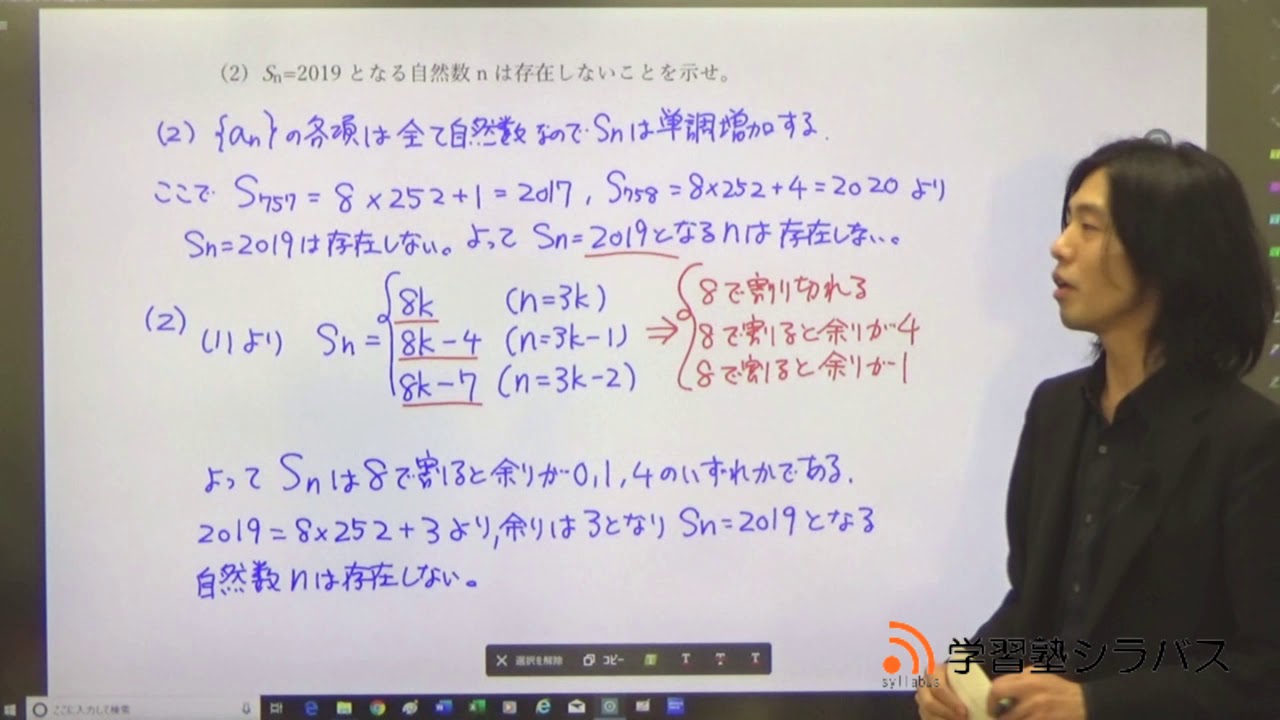 (2) Sn=2019 となる自然数 n は存在しないことを示せ。
(2) {an}の各項は全て自然数なのでSnは単調増加する.
ここで S757 = 8×252+1 = 2017, S758 = 8×252+4 = 2020 より
Sn=2019は存在しない。よって Sn=2019となるnは存在しない。
(2) (1)より Sn =
8k (n=3k) ⇒ 8で割り切れる
8k-4 (n=3k-1) 8で割ると余りが4
8k-7 (n=3k-2) 8で割ると余りが1
よって Snは8で割ると余りが0,1,4のいずれかである.
2019=8×252+3より,余りは3となり Sn=2019となる
自然数nは存在しない。
選択を解除 コピー T T T
学習塾シラバス
syllabus
ここに入力して検索